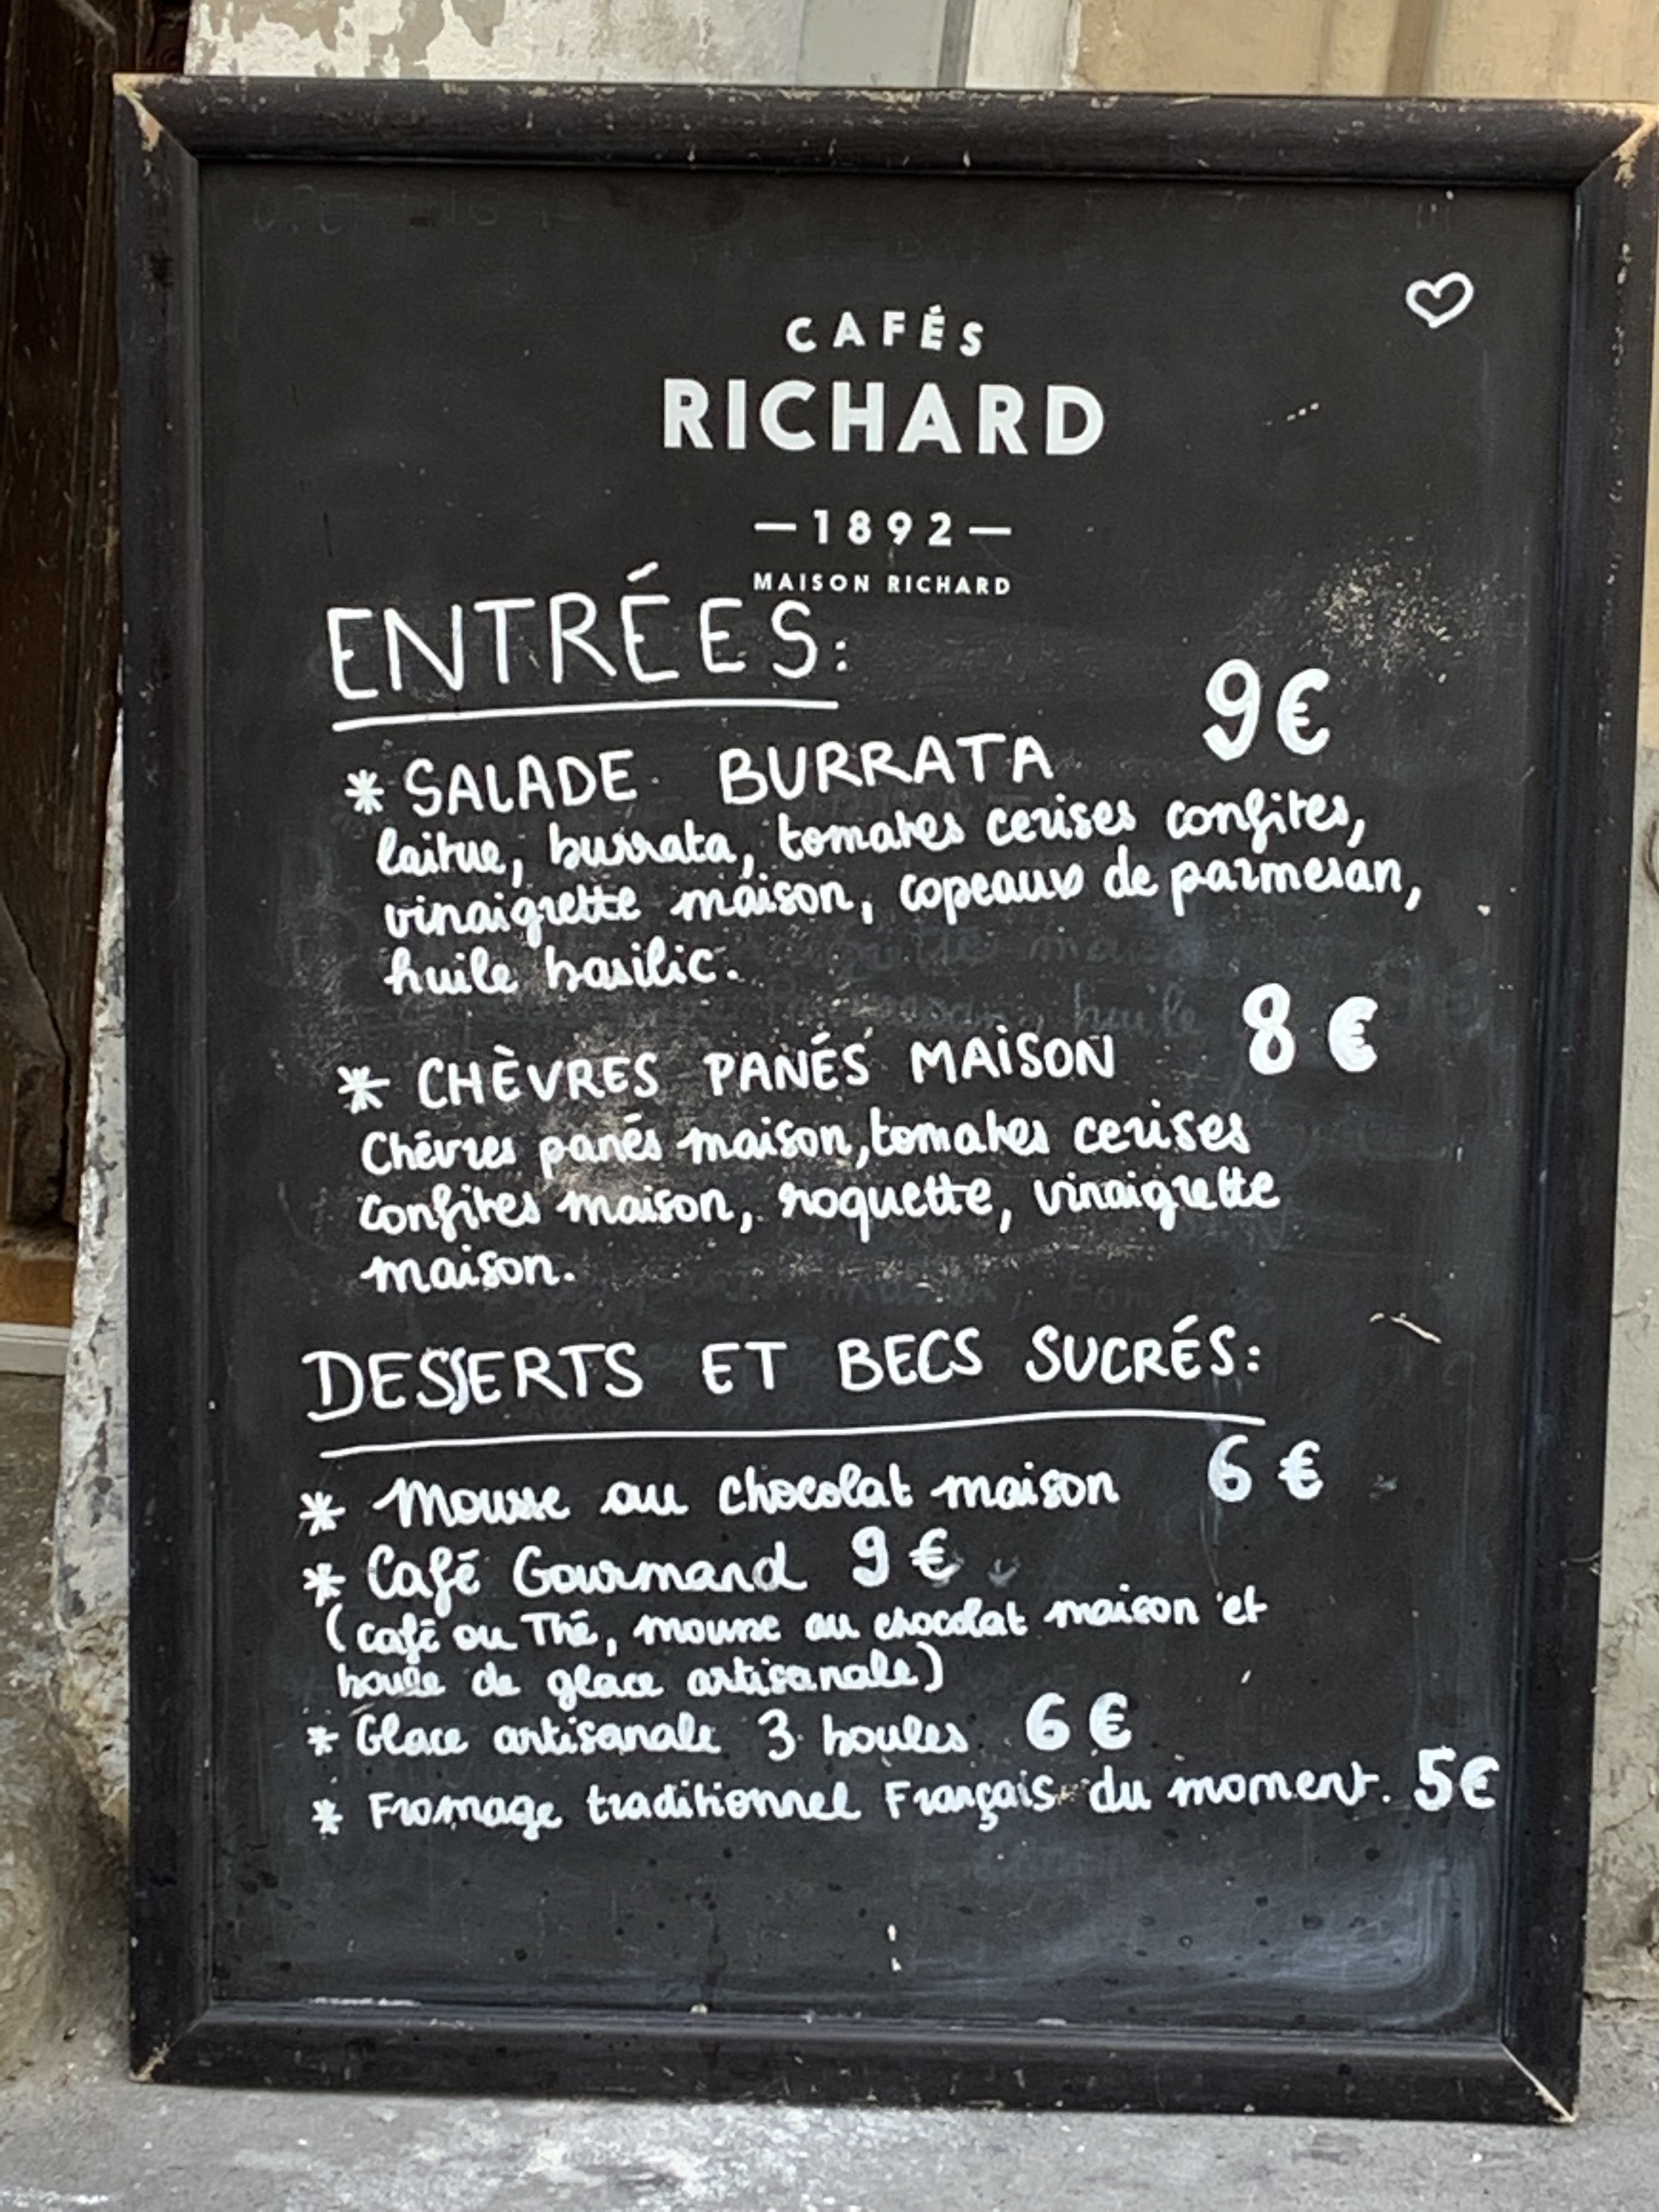 CAFÉS
RICHARD
—1892—
MAISON RICHARD
ENTRÉES:
* SALADE BURRATA 9€
laitue, burrata, tomates cerises confites,
vinaigrette maison, copeaux de parmesan,
huile basilic.
* CHÈVRES PANÉS MAISON 8€
Chèvres panés maison, tomates cerises
confites maison, roquette, vinaigrette
maison.
DESSERTS ET BECS SUCRÉS:
* Mousse au chocolat maison 6€
* Café Gourmand 9€
(café ou Thé, mousse au chocolat maison et
boule de glace artisanale)
* Glace artisanale 3 boules 6€
* Fromage traditionnel Français du moment. 5€